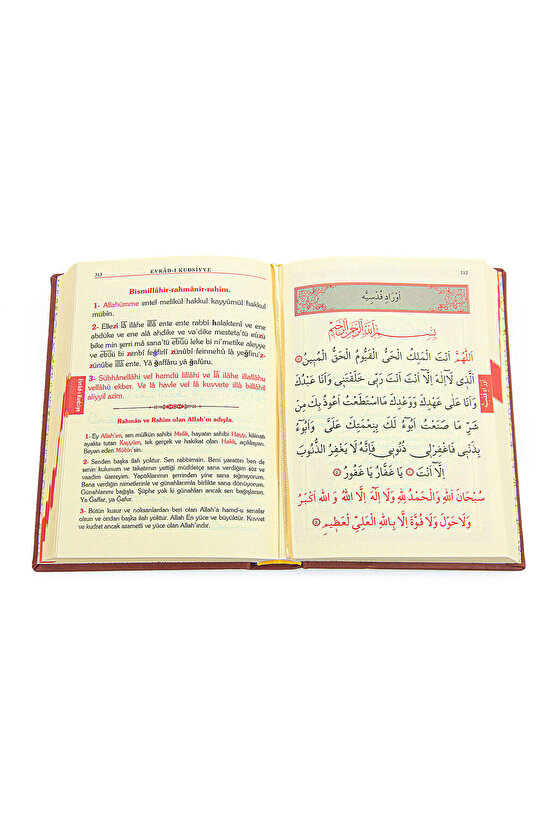 313
EVRÂD-I KUDSİYYE
Bismillâhir-rahmânir-rahîm.
1- Allahümme entel melikül hakkul kayyûmül hakkul
mübîn.
2- Ellezî lâ ilâhe illâ ente ente rabbî halaktenî ve ene
abdüke ve ene alâ ahdike ve va'dike mesteta'tü eûzü
bike min şerri mâ sana'tü ebûü leke bi ni'metike aleyye
ve ebûü bi zenbî feğfirlî zünûbî feinnehû lâ yeğfiru'z-
zünûbe illâ ente. Yâ ğaffâru yâ ğafûru.
3- Sübhânellâhi vel hamdü lillâhi ve lâ ilâhe illallâhu
vellâhü ekber. Ve lâ havle vel lâ kuvvete illâ billâhil
aliyyil azîm.
Rahmân ve Rahîm olan Allah'ın adıyla.
1- Ey Allah'ım, sen mülkün sahibi Melik, hayatın sahibi Hayy, kâinatı
ayakta tutan Kayyûm, tek gerçek ve hakikat olan Hakk, açıklayan,
Beyan eden Mübîn'sin.
2- Senden başka ilah yoktur. Sen rabbimsin. Beni yarattın ben de
senin kulunum ve takatımın yettiği müddetçe sana verdiğim söz ve
vaadim üzereyim. Yaptıklarımın şerrinden yine sana sığınıyorum.
Bana verdiğin nimetlerinle ve günahlarımla birlikte sana döndüm.
Günahlarımı bağışla. Şüphe yok ki günahları ancak sen bağışlarsın.
Ya Gaffar, ya Gafur.
3- Bütün kusur ve noksanlardan beri olan Allah'a hamd-u senalar
olsun ve ondan başka ilah yoktur. Allah En yüce ve büyüktür. Kuvvet
ve kudret ancak azametli ve yüce olan Allah'ındır.
Evrâd-ı Kudsiyye
312
اَوْرَادِ قُدْسِيَّه
بِسْمِ اللّٰهِ الرَّحْمٰنِ الرَّحِيمِ
اَللّٰهُمَّ اَنْتَ الْمَلِكُ الْحَقُّ الْقَيُّومُ الْحَقُّ الْمُبِينُ ١
اَلَّذِى لَآ اِلٰهَ اِلَّا اَنْتَ اَنْتَ رَبِّى خَلَقْتَنِى وَاَنَا عَبْدُكَ
وَاَنَا عَلٰى عَهْدِكَ وَوَعْدِكَ مَااسْتَطَعْتُ اَعُوذُ بِكَ مِنْ
شَرِّ مَا صَنَعْتُ اَبُوٓءُ لَكَ بِنِعْمَتِكَ عَلَىَّ وَاَبُوٓءُ
بِذَنْبِى فَاغْفِرْلِى ذُنُوبِى فَاِنَّهُ لَا يَغْفِرُ الذُّنُوبَ
اِلَّا اَنْتَ يَا غَفَّارُ يَا غَفُورُ ٢
سُبْحَانَ اللّٰهِ وَالْحَمْدُ لِلّٰهِ وَلَا اِلٰهَ اِلَّا اللّٰهُ وَ اللّٰهُ اَكْبَرُ
وَلَا حَوْلَ وَلَا قُوَّةَ اِلَّا بِاللّٰهِ الْعَلِىِّ الْعَظِيمِ ٣
اَوْرَادِ قُدْسِيَّه